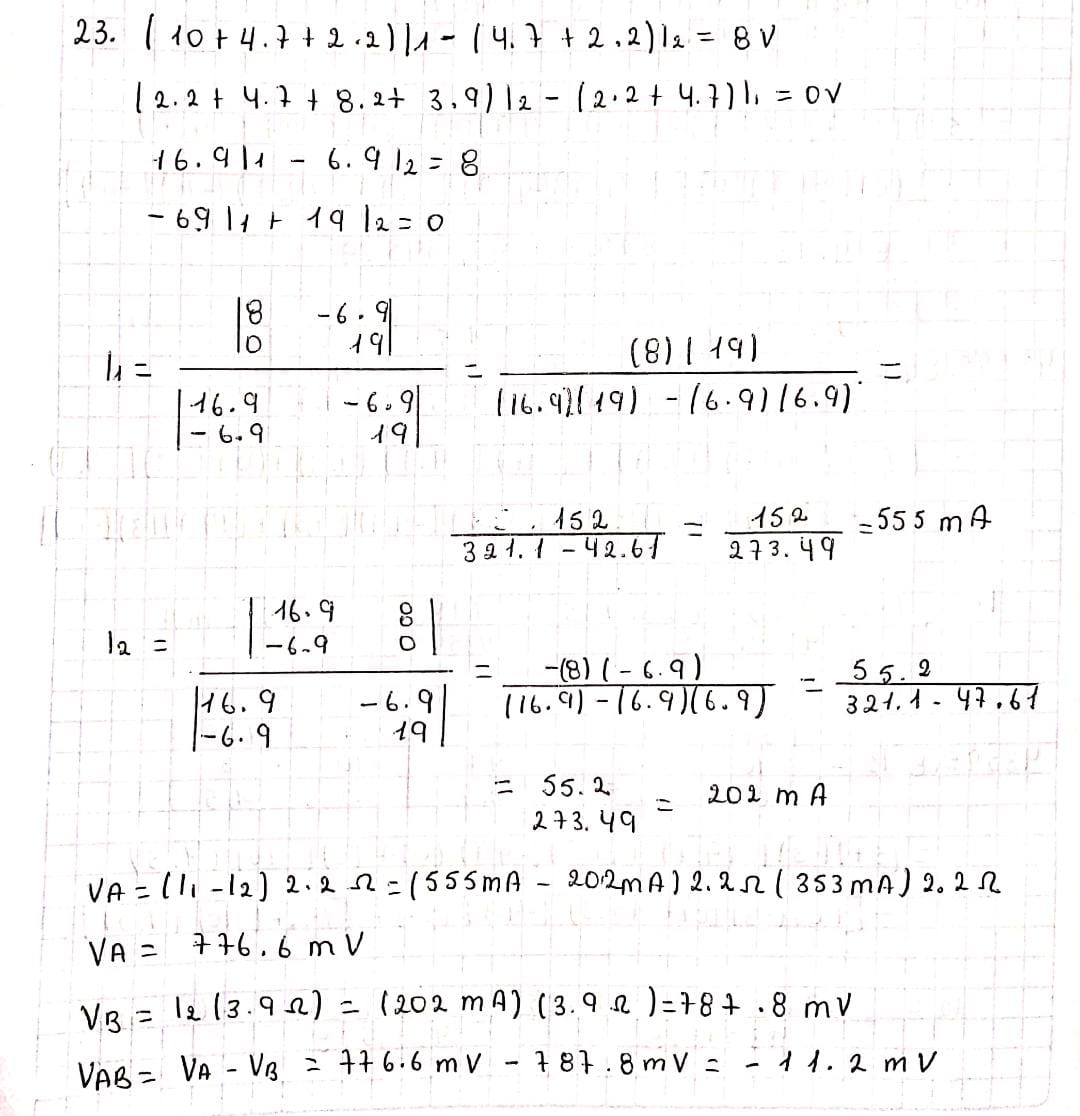 23. (10 + 4.7 + 2.2) I1 - (4.7 + 2.2) I2 = 8 V
(2.2 + 4.7 + 8.2 + 3.9) I2 - (2.2 + 4.7) I1 = 0V
16.9 I1 - 6.9 I2 = 8
-69 I1 + 19 I2 = 0
I1 = |8 -6.9| |0 19| / |16.9 -6.9| |-6.9 19| = (8)(19) / (16.9)(19) - (6.9)(6.9) =
152 / 321.1 - 42.61 = 152 / 273.49 = 555 mA
I2 = |16.9 8| |-6.9 0| / |16.9 -6.9| |-6.9 19| = -(8)(-6.9) / (16.9) - (6.9)(6.9) = 55.2 / 321.1 - 47.61
= 55.2 / 273.49 = 202 mA
VA = (I1 - I2) 2.2 Ω = (555mA - 202mA) 2.2 Ω (353 mA) 2.2 Ω
VA = 776.6 mV
VB = I2 (3.9 Ω) = (202 mA) (3.9 Ω) = 787.8 mV
VAB = VA - VB = 776.6 mV - 787.8 mV = -11.2 mV